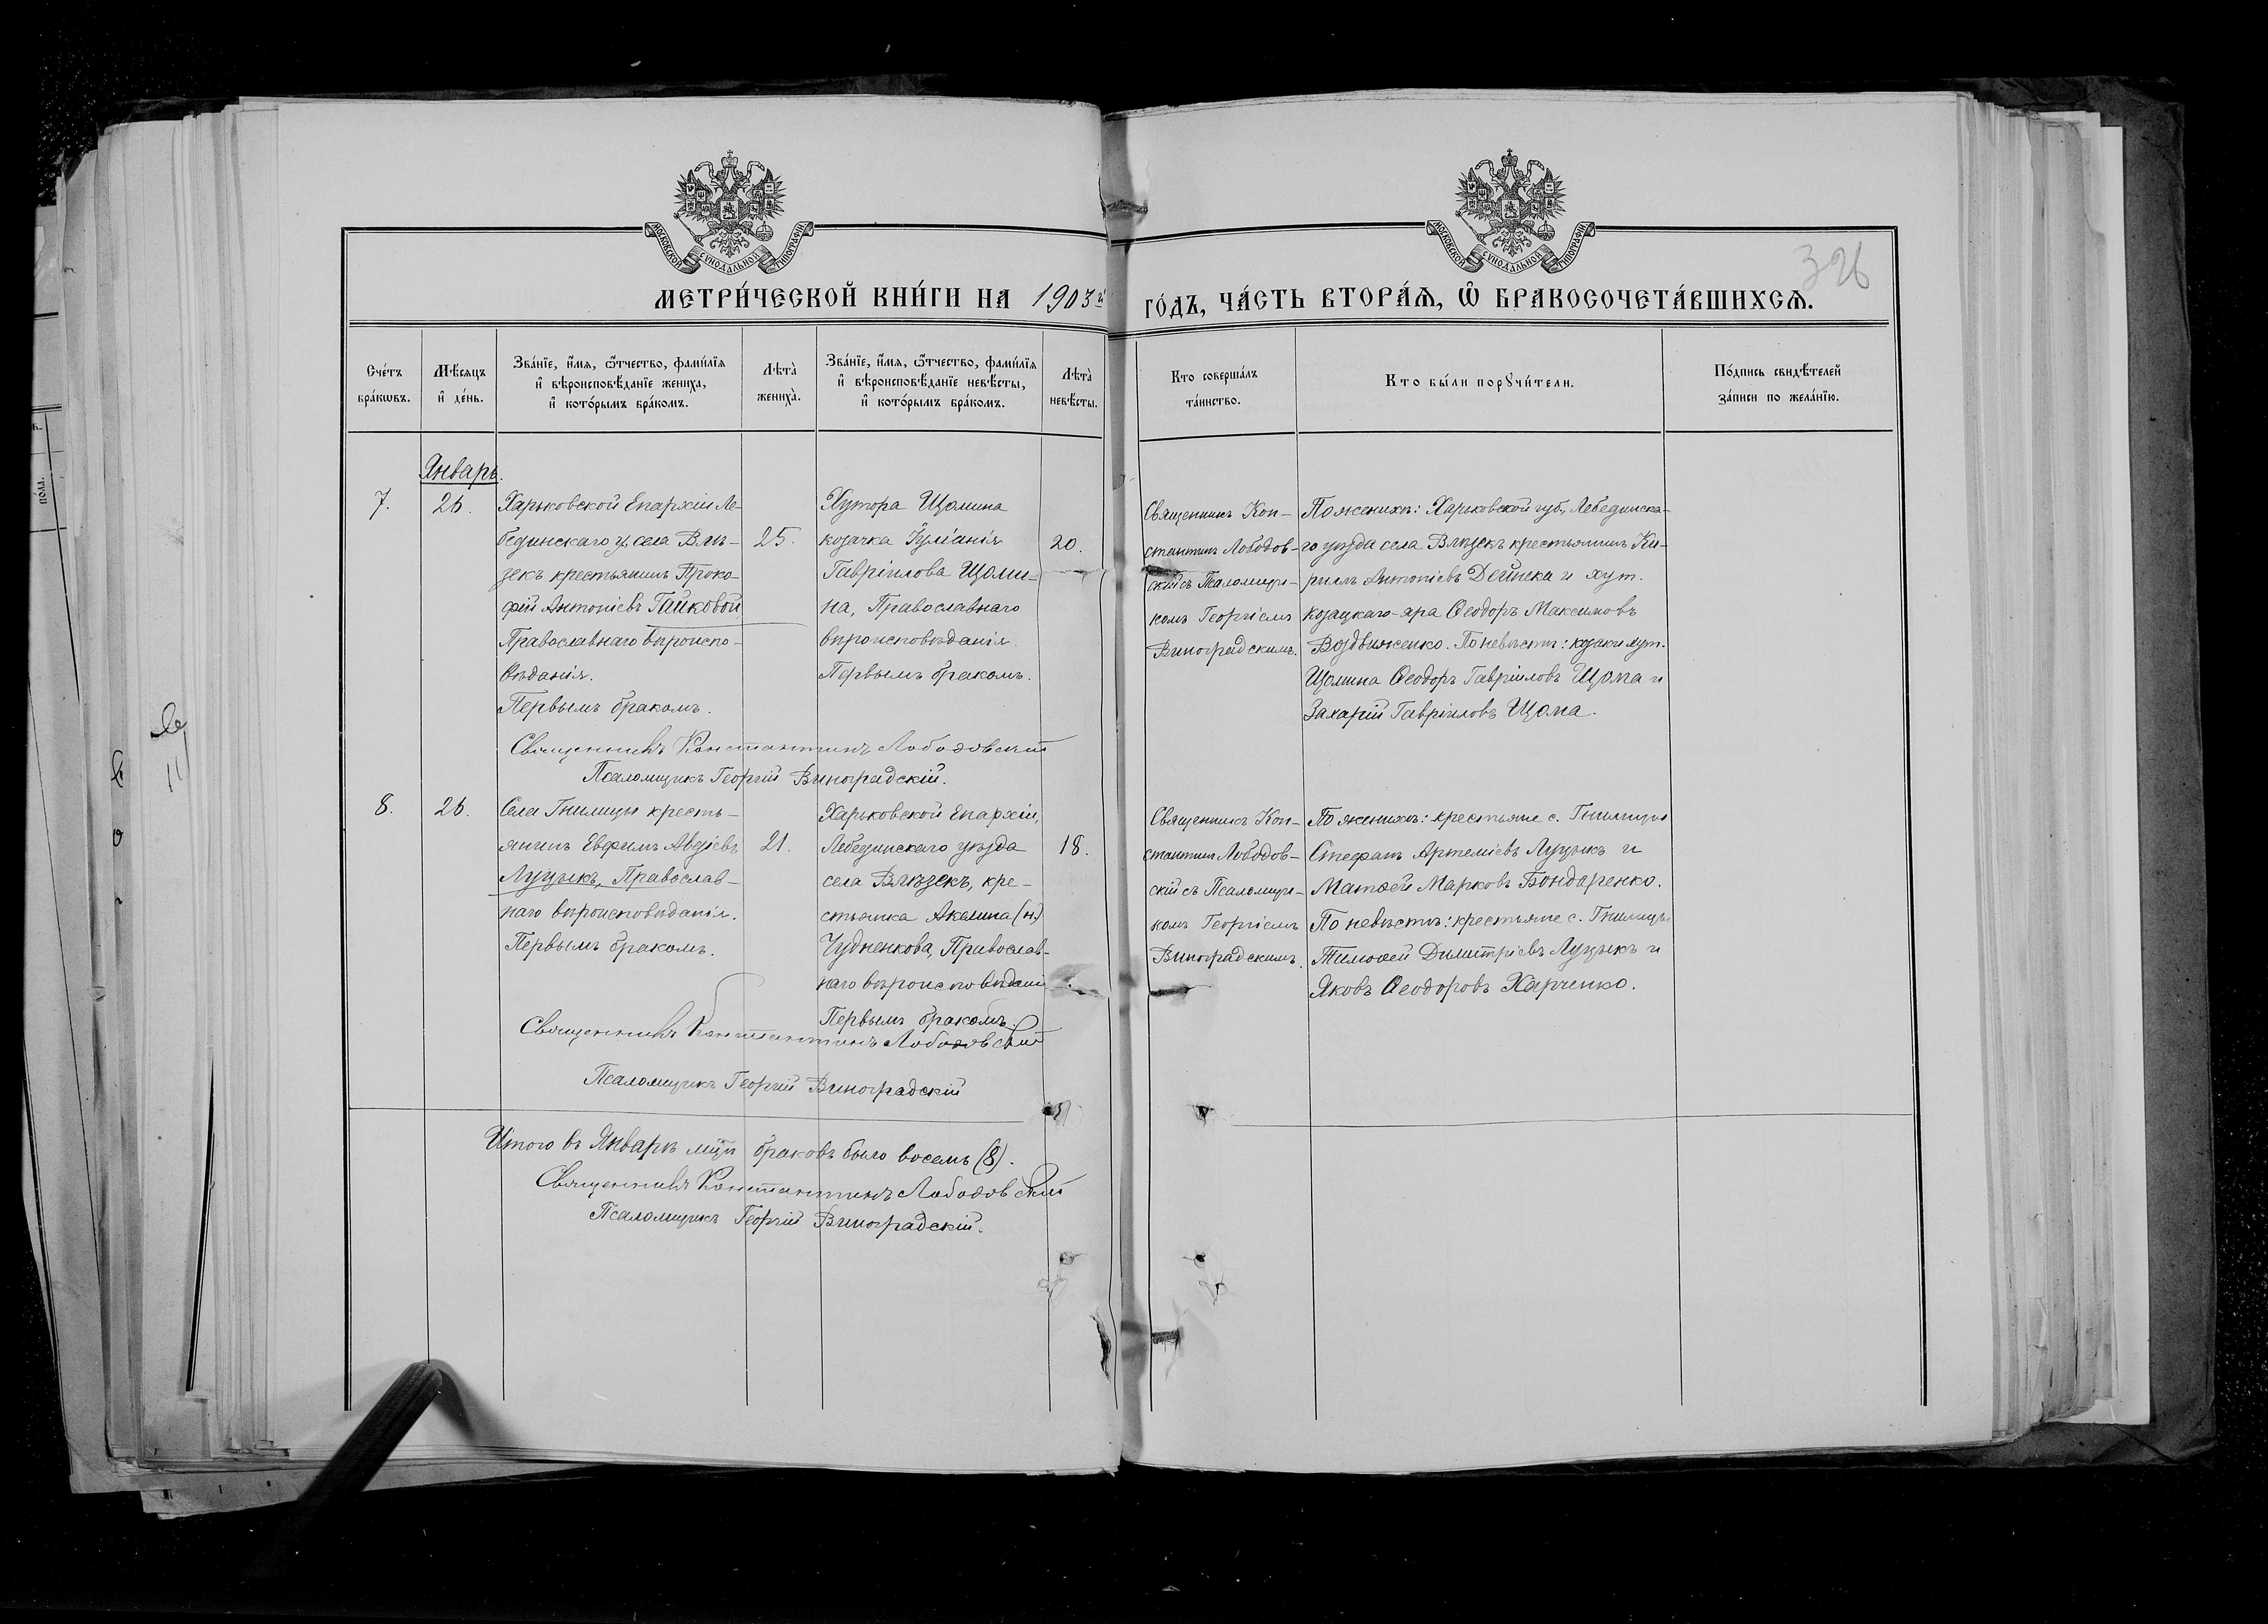 МОСКОВСКОЙ СУНОДАЛЬНОЙ ТИПОГРАФІИ
МОСКОВСКОЙ СУНОДАЛЬНОЙ ТИПОГРАФІИ
326
МЕТРИ́ЧЕСКОЙ КНИ́ГИ НА 1903й ГО́ДЪ, ЧА́СТЬ ВТОРА́Ѧ, Ѽ БРАКОСОЧЕТА́ВШИХСѦ.
Сче́тъ бра́кѡвъ.
Мѣ́сѧцъ и҆ де́нь.
Зва́нїе, и҆́мѧ, ѻ҆́тчество, фами́лїѧ и҆ вѣроисповѣ́данїе жениха̀, и҆ кото́рымъ бра́комъ.
Лѣта̀ жениха̀.
Зва́нїе, и҆́мѧ, ѻ҆́тчество, фами́лїѧ и҆ вѣроисповѣ́данїе невѣ́сты, и҆ кото́рымъ бра́комъ.
Лѣта̀ невѣ́сты.
Кто соверша́лъ та́инство.
Кто бы́ли порꙋчи́тели.
По́дпись свидѣ́телей за́писи по жела́нїю.
Январь.
7.
26.
Харьковской Епархіи Ле-
бединскаго у, села Влѣ-
зекъ крестьянинъ Проко-
фій Антоніевъ Гайковой,
Православнаго вѣроиспо-
вѣданія.
Первымъ бракомъ.
25.
Хутора Щомина
козачка Іуліанія
Гавріилова Щоми-
на, Православнаго
вѣроисповѣданія
Первымъ бракомъ.
20.
Священникъ Кон-
стантинъ Лободов-
скій съ Псаломщи-
комъ Георгіемъ
Виноградскимъ.
По женихѣ: Харьковской губ., Лебединска-
го уѣзда села Влѣзекъ крестьянинъ Ки-
риллъ Антоніевъ Дейнека и хут.
Козацкаго-яра Ѳеодоръ Максимовъ
Воздвиженко. По невѣстѣ: козаки хут.
Щомина Ѳеодоръ Гавріиловъ Щома и
Захарій Гавріиловъ Щома.
Священникъ Константинъ Лободовскій
Псаломщикъ Георгій Виноградскій.
8.
26.
Села Гнилицы кресть-
янинъ Евфимъ Авдіевъ
Луцыкъ, Православ-
наго вѣроисповѣданія.
Первымъ бракомъ.
21.
Харьковской Епархіи,
Лебединскаго уѣзда
села Влѣзекъ, кре-
стьянка Акилина (н.)
Чудненкова, Православ-
наго вѣроисповѣданія.
Первымъ бракомъ.
18.
Священникъ Кон-
стантинъ Лободов-
скій съ Псаломщи-
комъ Георгіемъ
Виноградскимъ.
По женихѣ: крестьяне с. Гнилицы
Стефанъ Артеміевъ Луцыкъ и
Матѳей Марковъ Бондаренко.
По невѣстѣ: крестьяне с. Гнилицы
Тимоѳей Димитріевъ Луцыкъ и
Яковъ Ѳеодоровъ Харченко.
Священникъ Константинъ Лободовскій
Псаломщикъ Георгій Виноградскій
Итого въ Январѣ мцѣ браковъ было восемь (8).
Священникъ Константинъ Лободовскій
Псаломщикъ Георгій Виноградскій.